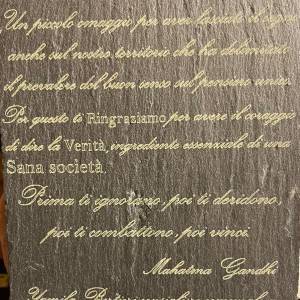 Un piccolo omaggio per aver lasciato il segno
anche sul nostro territorio che ha delimitato
il prevalere del buon senso sul pensiero unico.
Per questo ti Ringraziamo per avere il coraggio
di dire la Verità, ingrediente essenziale di una
Sana società.
Prima ti ignorano, poi ti deridono,
poi ti combattono, poi vinci.
Mahatma Gandhi